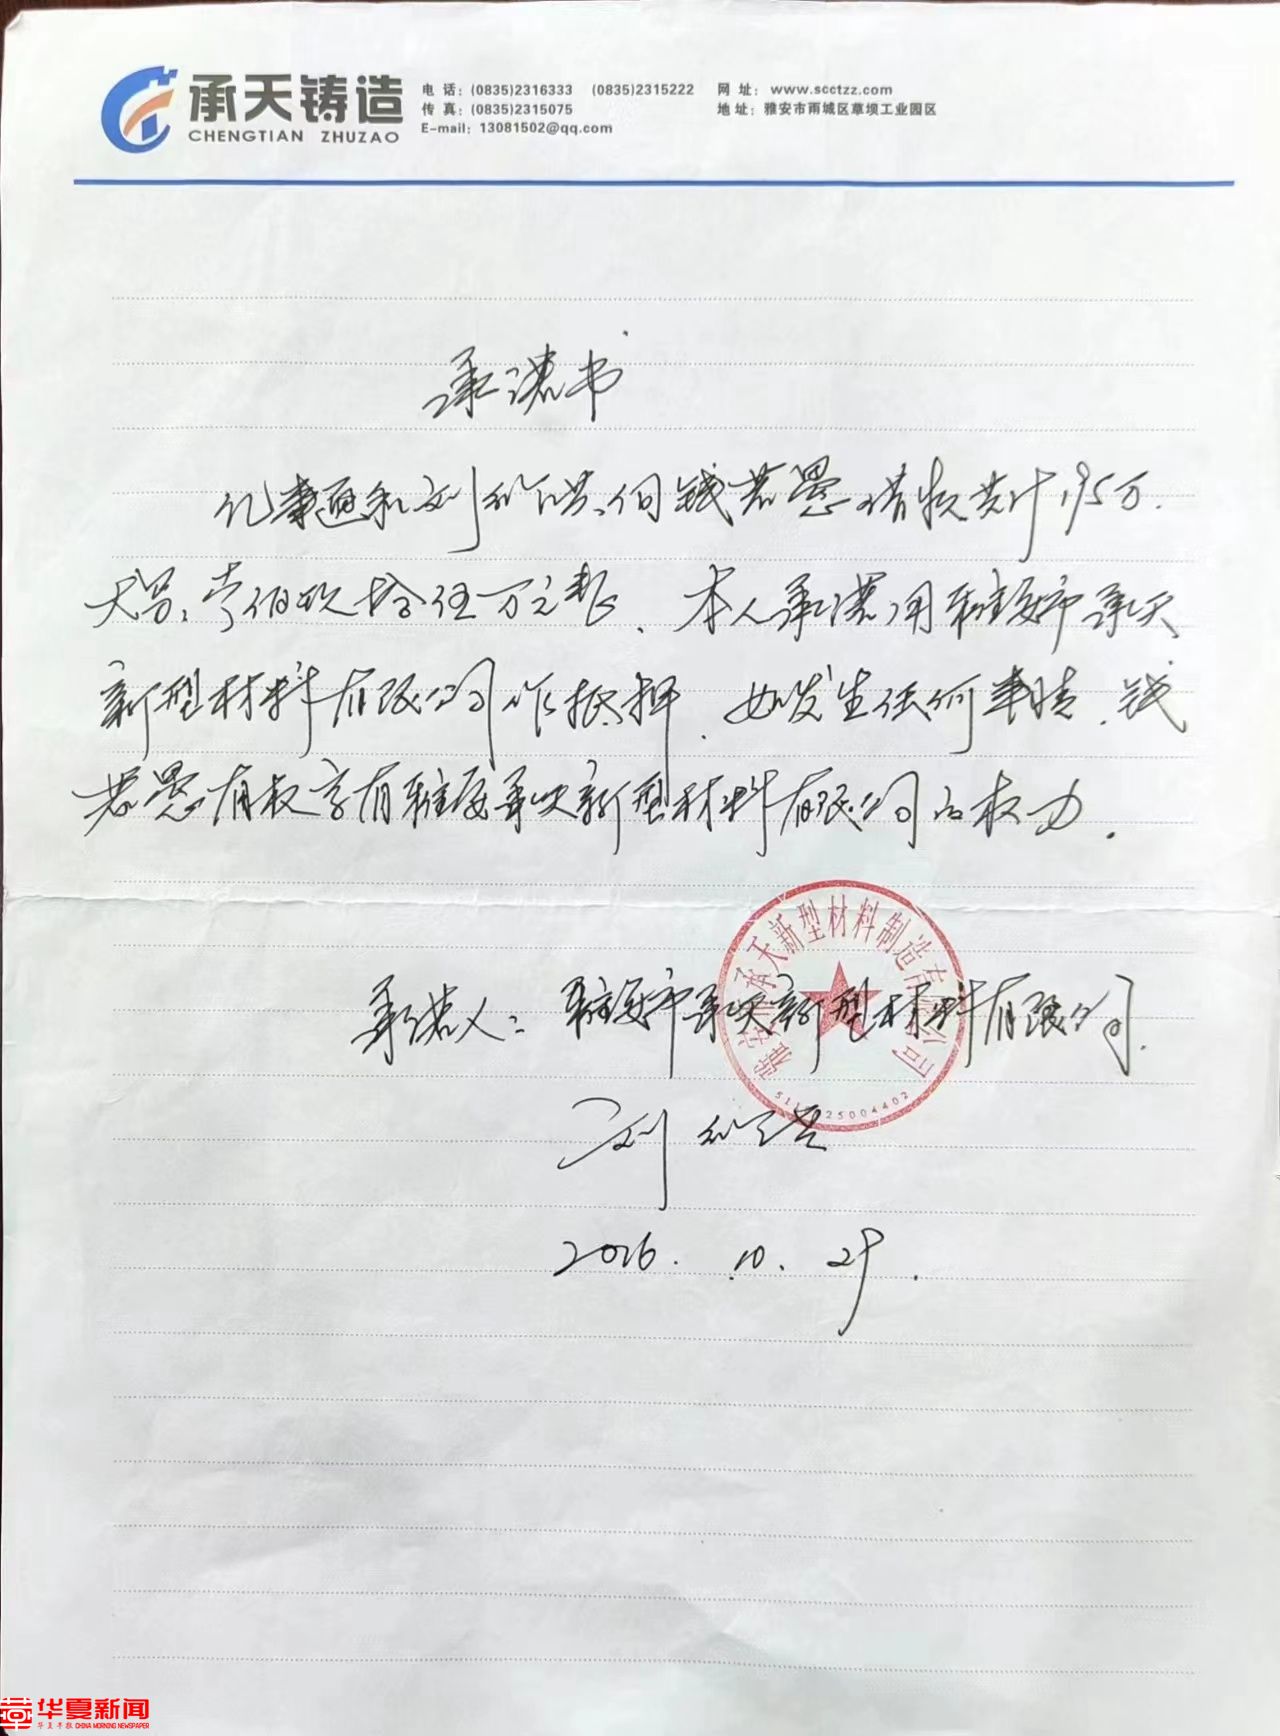 承天铸造
CHENGTIAN ZHUZAO
电 话：(0835)2316333 (0835)2315222
传 真：(0835)2315075
E-mail：13081502@qq.com
网 址：www.scctzz.com
地 址：雅安市雨城区草坝工业园区
承诺书
亿事通和刘 共向钱若愚借款共计195万.
大写:壹佰玖拾伍万元整、本人承诺用雅安市承天
新型材料有限公司作抵押.如发生任何事情.钱
若愚有权享有雅安承天新型材料有限公司的权力.
承诺人: 雅安市承天新型材料有限公司.
雅安市承天新型材料制造有限公司
刘
2016. 10. 29.
华夏新闻
华夏早报 CHINA MORNING NEWSPAPER